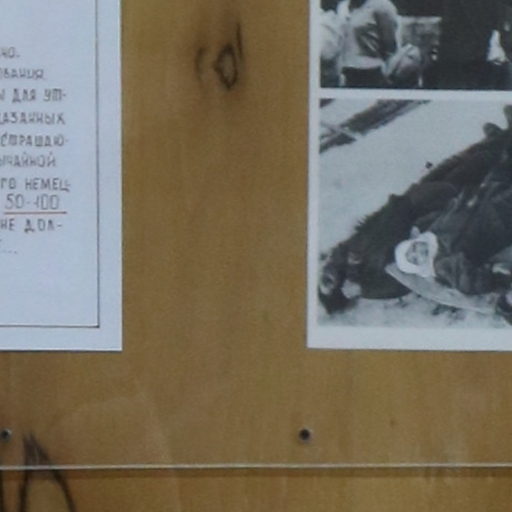 но.
ования
ы для ут-
казанных
страшаю-
ычайной
го немец-
50-100
не дол-